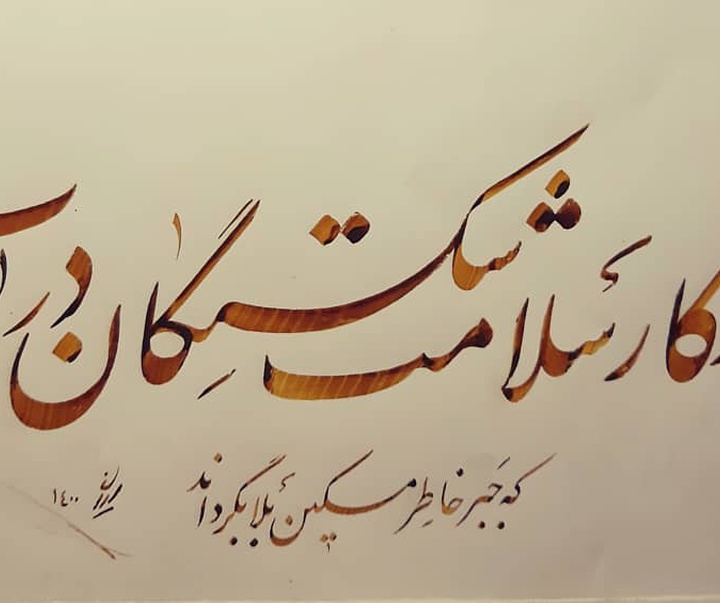 گار سلامت شکستگان در
که جَبر خاطِر مسکین بلا بگرداند
۱۴۰۰